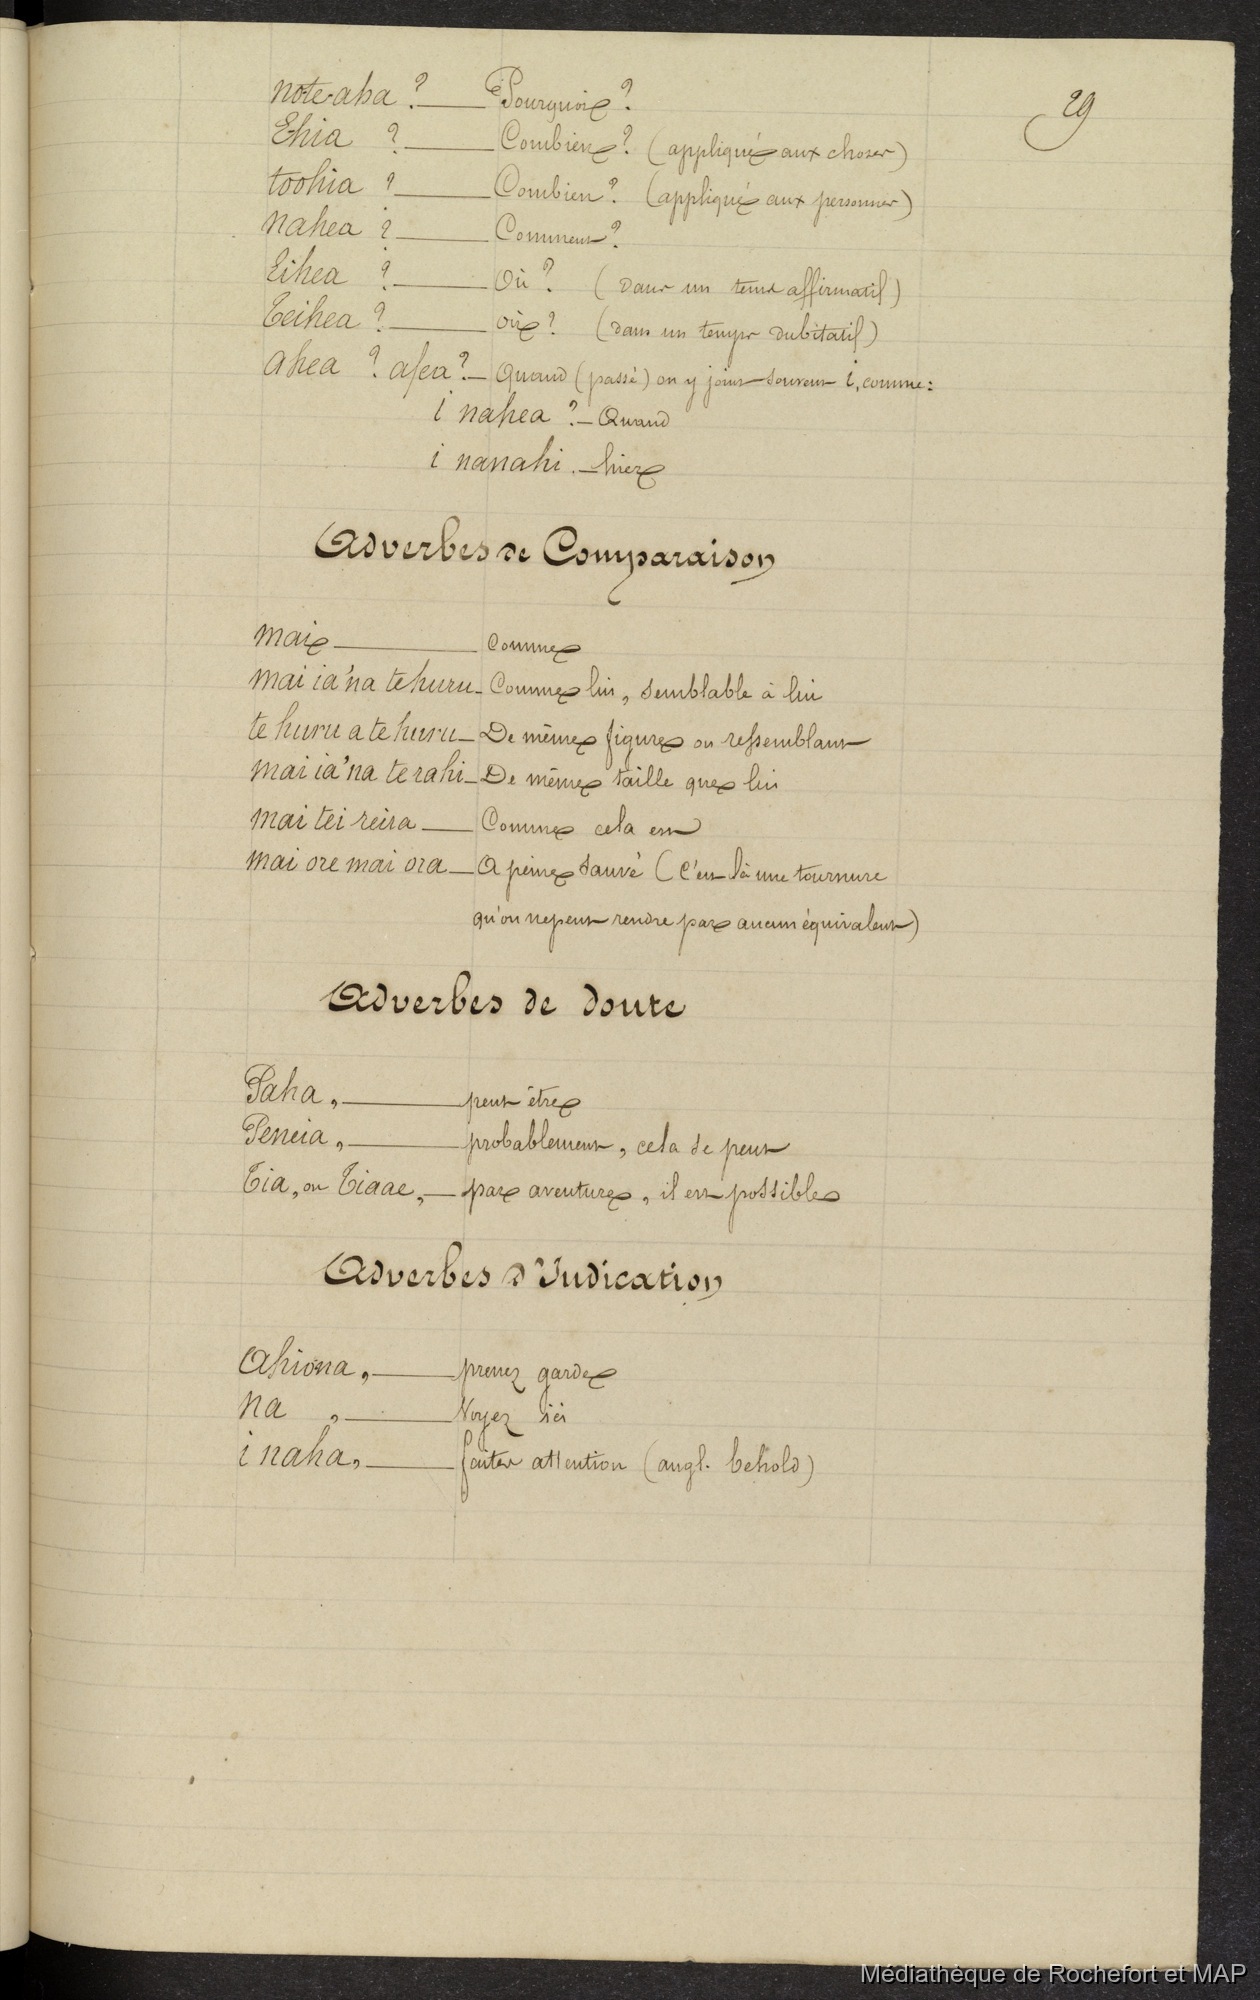 29
note aha ? Pourquoi ?
Ehia ? Combien ? (appliqué aux choses)
toohia ? Combien ? (appliqué aux personnes)
nahea ? Comment ?
Eihea ? Où ? (dans un tems affirmatif)
Teihea ? où ? (dans un temps dubitatif)
ahea ? afea ? Quand (passé) on y joint souvent i, comme :
i nahea ? Quand
i nanahi . hier
Adverbes de Comparaison
mai comme
mai ia'na te huru Comme lui, semblable à lui
te huru a te huru De même figure ou ressemblant
mai ia'na te rahi De même taille que lui
mai tei reira Comme cela est
mai ore mai ora A peine sauvé (C'est là une tournure
qu'on ne peut rendre par aucun équivalent)
Adverbes de doute
Paha, peut être
Peneia, probablement, cela se peut
Tia, ou Tiaae, par aventure, il est possible
Adverbes d'Indication
Ahiona, prenez garde
na , Voyez ici
i naha, faites attention (angl. behold)
Médiathèque de Rochefort et MAP